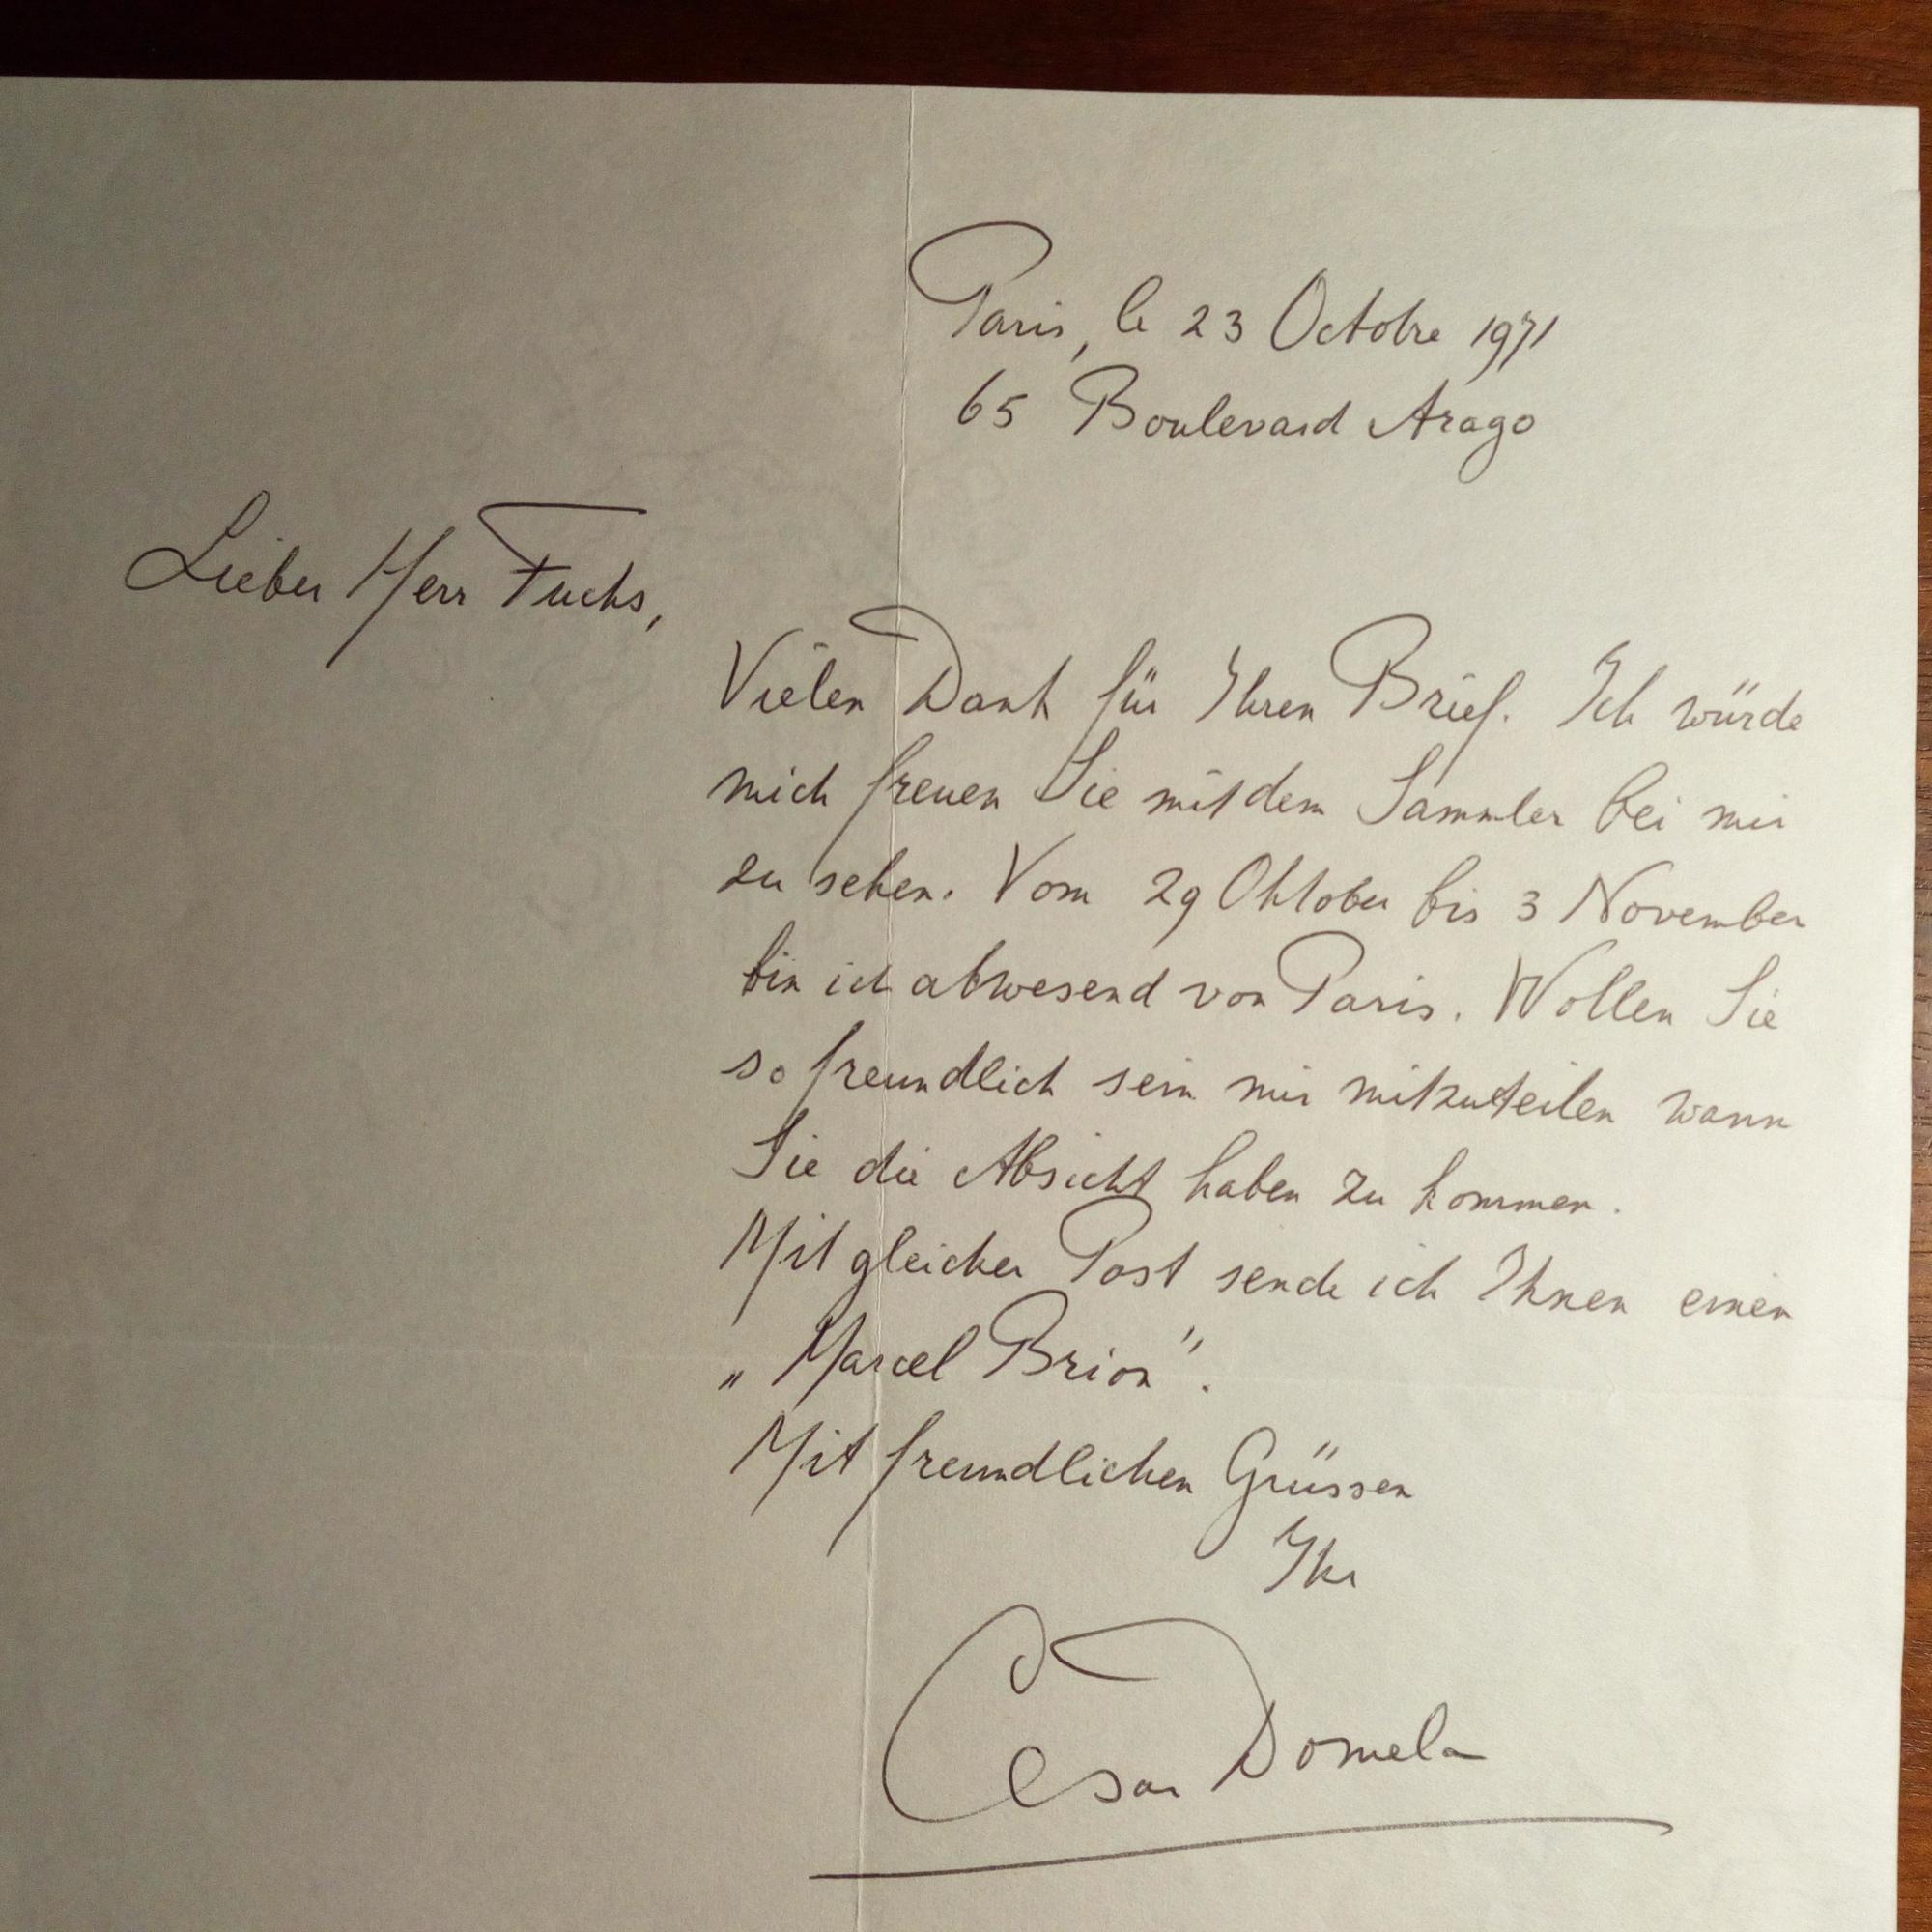 Paris, le 23 Octobre 1971
65 Boulevard Arago
Lieber Herr Fuchs,
Vielen Dank für Ihren Brief. Ich würde
mich freuen Sie mit dem Sammler bei mir
zu sehen. Vom 29 Oktober bis 3 November
bin ich abwesend von Paris. Wollen Sie
so freundlich sein mir mitzuteilen wann
Sie die Absicht haben zu kommen.
Mit gleicher Post sende ich Ihnen einen
„Marcel Brion".
Mit freundlichen Grüssen
Ihr
César Domela